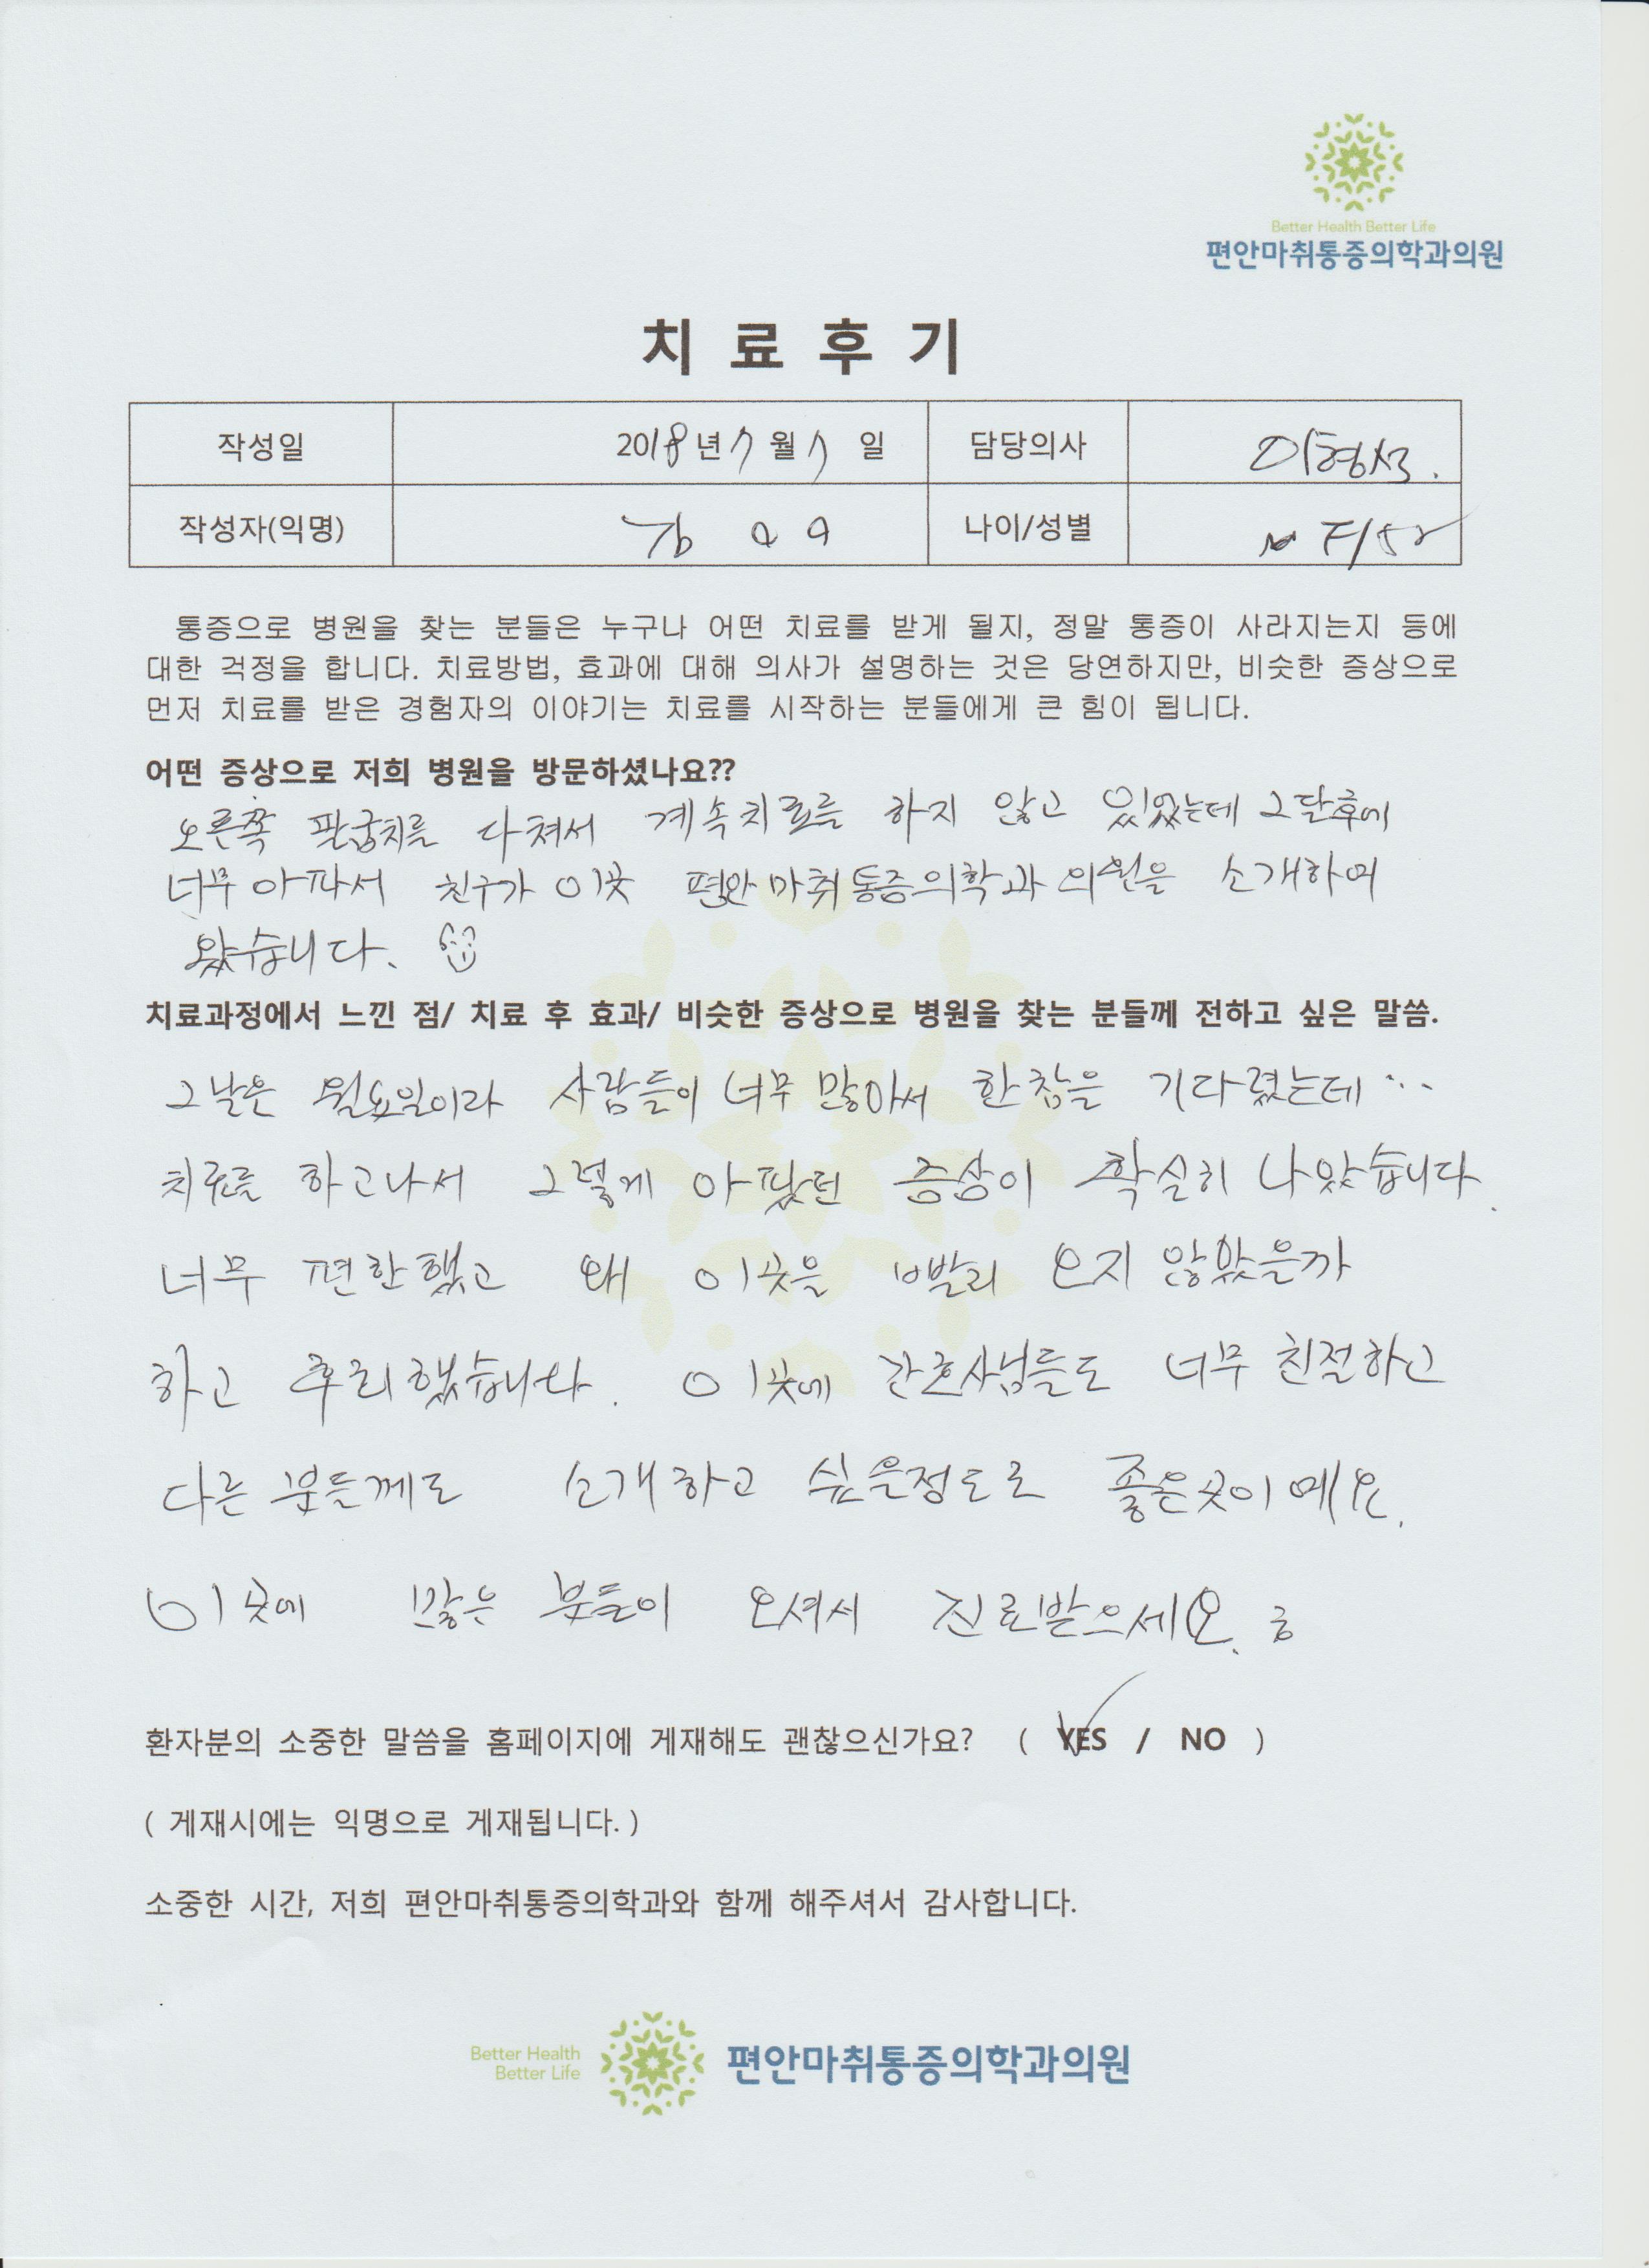 Better Health Better Life
편안마취통증의학과의원
치 료 후 기
작성일 2018년 7월 7일 담당의사 이형석.
작성자(익명) 김 ㅇㅇ 나이/성별
통증으로 병원을 찾는 분들은 누구나 어떤 치료를 받게 될지, 정말 통증이 사라지는지 등에
대한 걱정을 합니다. 치료방법, 효과에 대해 의사가 설명하는 것은 당연하지만, 비슷한 증상으로
먼저 치료를 받은 경험자의 이야기는 치료를 시작하는 분들에게 큰 힘이 됩니다.
어떤 증상으로 저희 병원을 방문하셨나요??
오른쪽 팔굼치를 다쳐서 계속치료를 하지 않고 있었는데 2달후에
너무 아파서 친구가 이곳 편안마취통증의학과 의원을 소개하여
왔습니다.
치료과정에서 느낀 점/ 치료 후 효과/ 비슷한 증상으로 병원을 찾는 분들께 전하고 싶은 말씀.
그날은 월요일이라 사람들이 너무 많아서 한참을 기다렸는데 ...
치료를 하고나서 그렇게 아팠던 증상이 확실히 나았습니다.
너무 편한했고 왜 이곳을 빨리 오지 않았을까
하고 후회했습니다. 이곳에 간호사님들도 너무 친절하고
다른 분들께도 소개하고 싶은정도로 좋은곳이예요.
이곳에 많은 분들이 오셔서 진료받으세요.
환자분의 소중한 말씀을 홈페이지에 게재해도 괜찮으신가요? ( YES / NO )
( 게재시에는 익명으로 게재됩니다. )
소중한 시간, 저희 편안마취통증의학과와 함께 해주셔서 감사합니다.
Better Health
Better Life
편안마취통증의학과의원